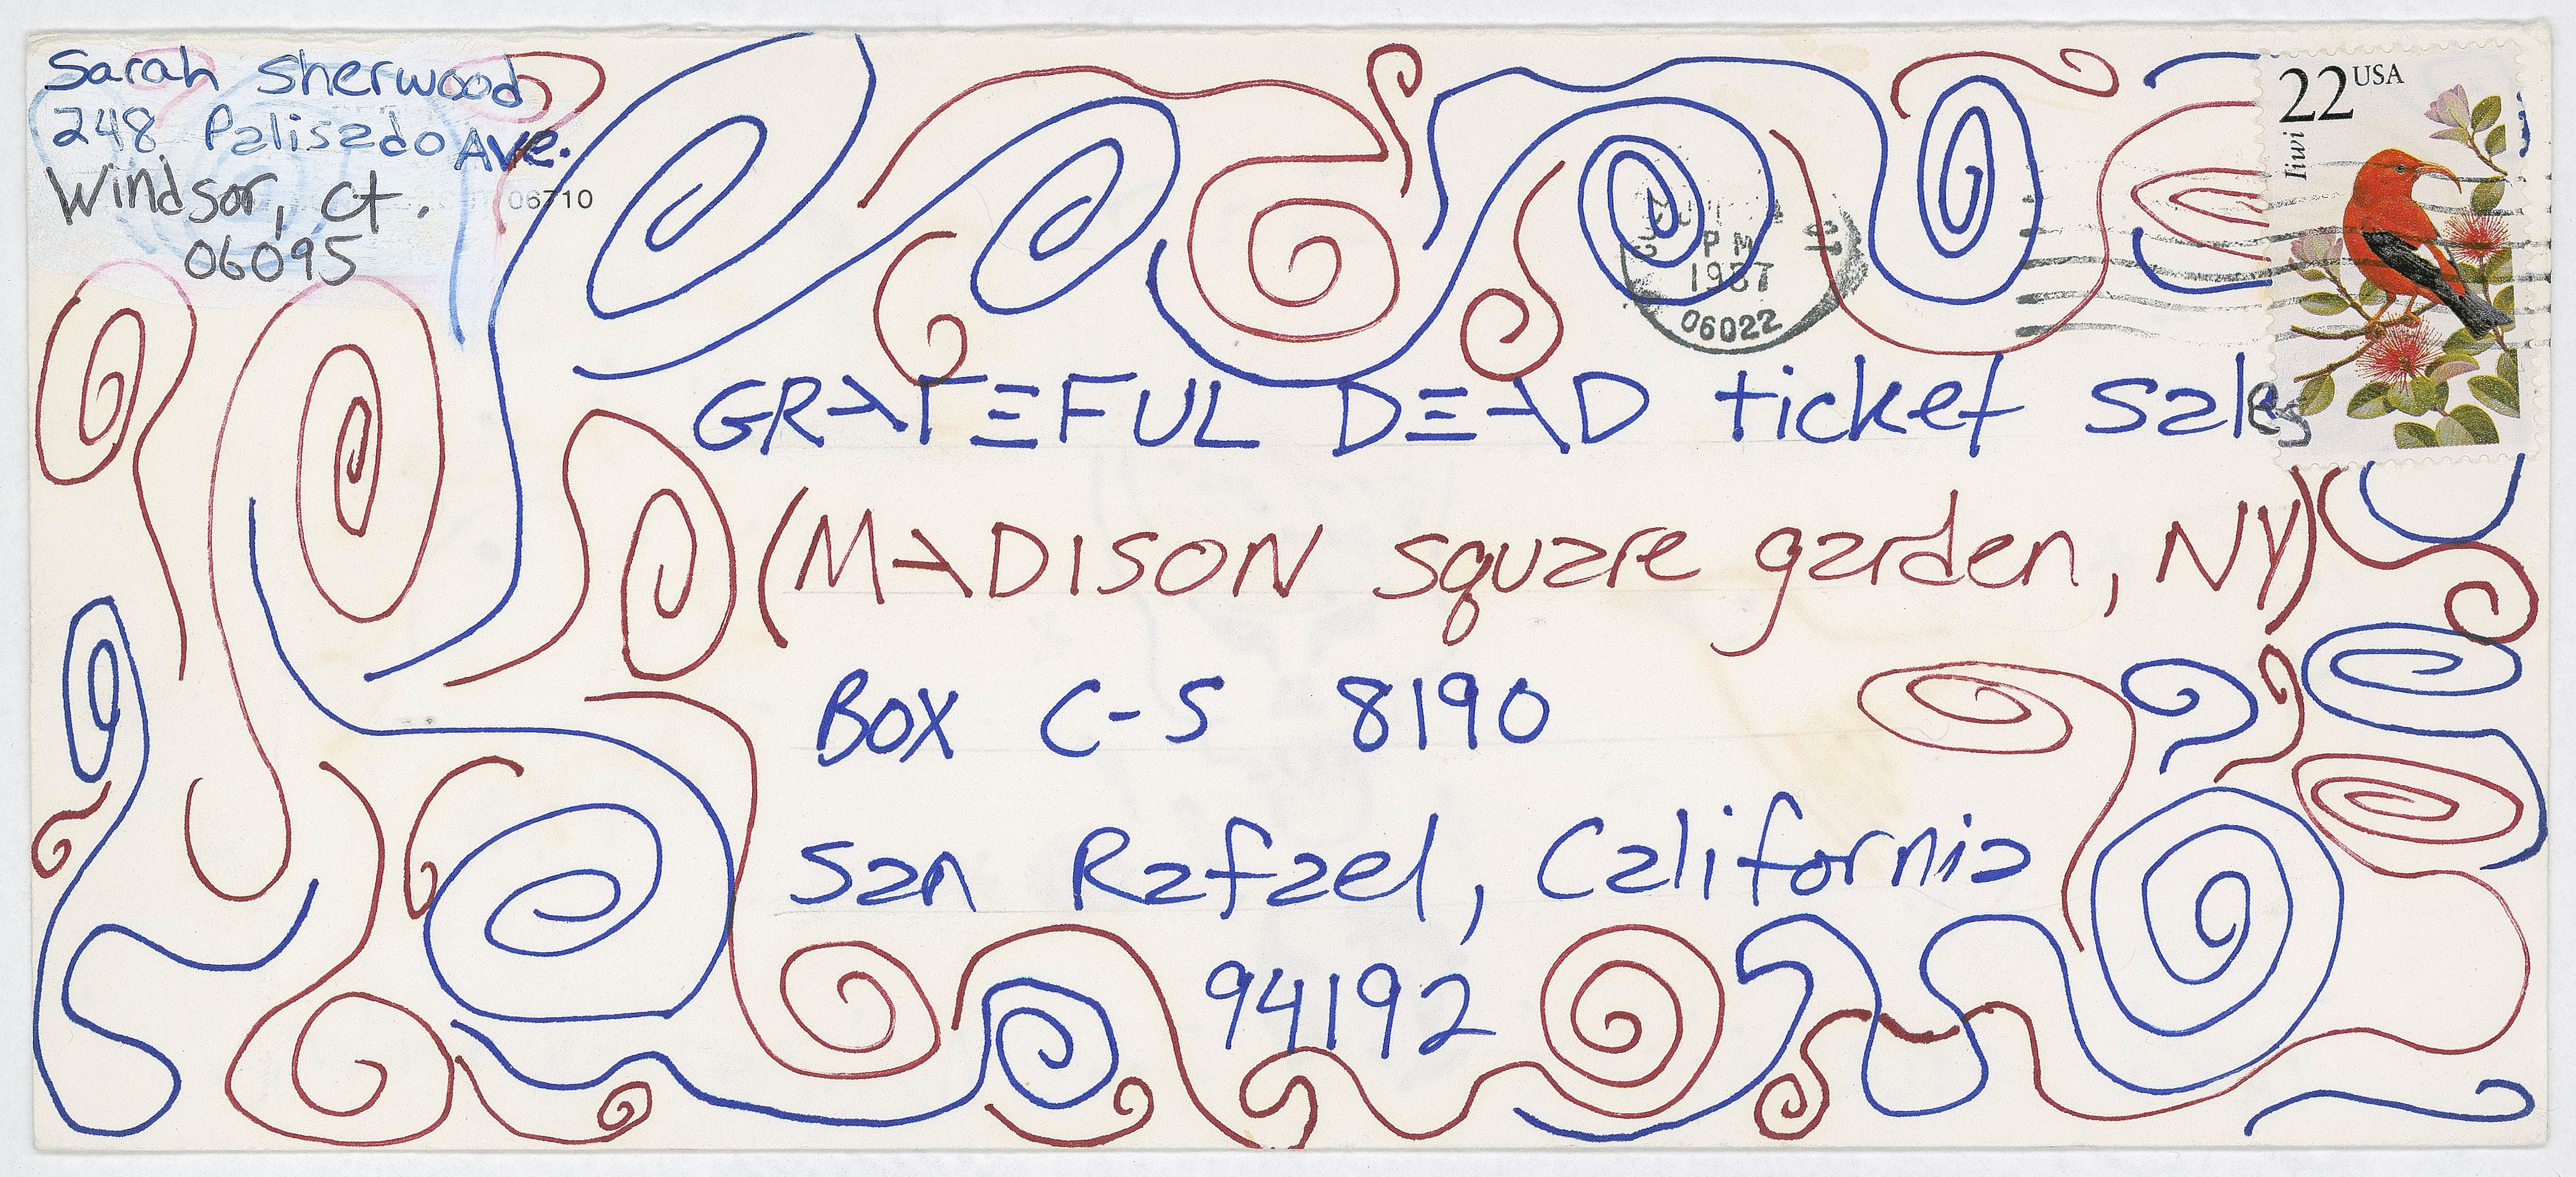 Sarah Sherwood
248 Palisado Ave.
Windsor, Ct.
06095
06710
22 USA
Iiwi
PM
1987
06022
GRATEFUL DEAD ticket sales
(MADISON square garden, NY)
BOX C-S 8190
San Rafael, California
94192